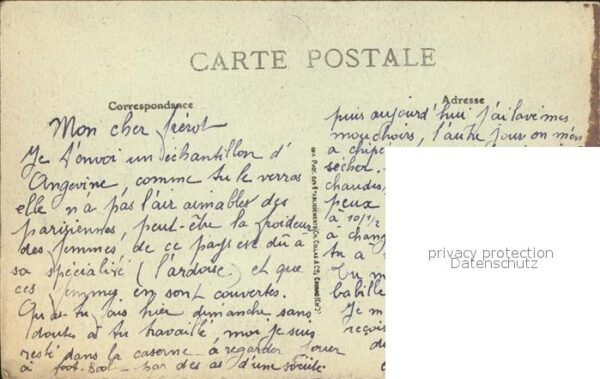 CARTE POSTALE
Correspondance
Adresse
Mon cher frérot
Je t'envoi un échantillon d'
Angevine, comme tu le verras
elle n'a pas l'air aimables des
parisiennes, peut-être la froideur
des femmes de ce pays est dû à
sa spécialité (l'ardoise) et que
ces femmes en sont couvertes.
Qu'as-tu fais hier dimanche sans
doutes a tu travaillé, moi je suis
resté dans la caserne à regarder jouer
à foot-Bool par des as d'une société
puis aujourd'hui j'ai lavé mes
mouchoirs, l'autre jour on m'en
a chipé
sécher.
chaudes,
peux
à 10/1/2
à chang
tu a
Tu m
babille
Je m
reçois
de
privacy protection
Datenschutz